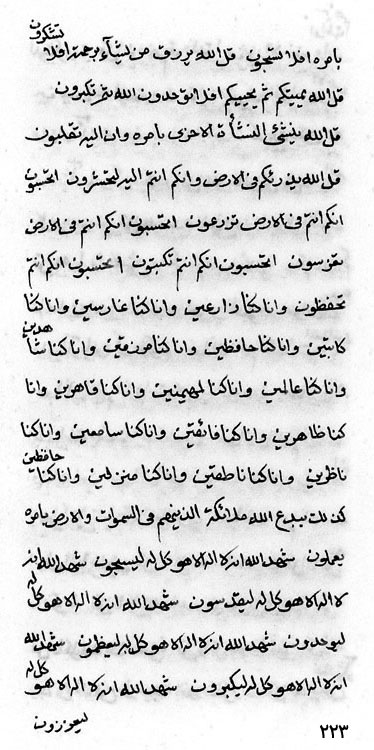 بامره افلا تسبحون قل الله يرزق من يشآء برحمته افلا تشكرون
قل الله يميتكم ثم يحييكم افلا توحدون الله ثم تكبرون
قل الله ينشئ النشأة الاخرى بامره وان اليه تقلبون
قل الله يذرئكم فى الارض وانكم انتم اليه لتحشرون اتحسبون
انكم انتم فى الارض تزرعون اتحسبون انكم انتم فى الارض
تغرسون اتحسبون انكم انتم تكتبون اتحسبون انكم انتم
تحفظون وانا كنا زارعين وانا كنا غارسين وانا كنا
كاتبين وانا كنا حافظين وانا كنا مرزقين وانا كنا شاهدين
وانا كنا عالمين وانا كنا لمهيمنين وانا كنا قاهرين وانا
كنا ظاهرين وانا كنا فائقين وانا كنا سامعين وانا كنا
ناظرين وانا كنا ناطقين وانا كنا منزلين وانا كنا حافظين
كذلك يبدع الله ملائكة الذينهم فى السموات والارض بامره
يعملون شهد الله انه لا اله الا هو كل له ليسبحون شهد الله انه
لا اله الا هو كل له ليقدسون شهد الله انه لا اله الا هو كل له
ليوحدون شهد الله انه لا اله الا هو كل له ليعظمون شهد الله
انه لا اله الا هو كل له ليكبرون شهد الله انه لا اله الا هو كل له
ليعززون
٢٢٣